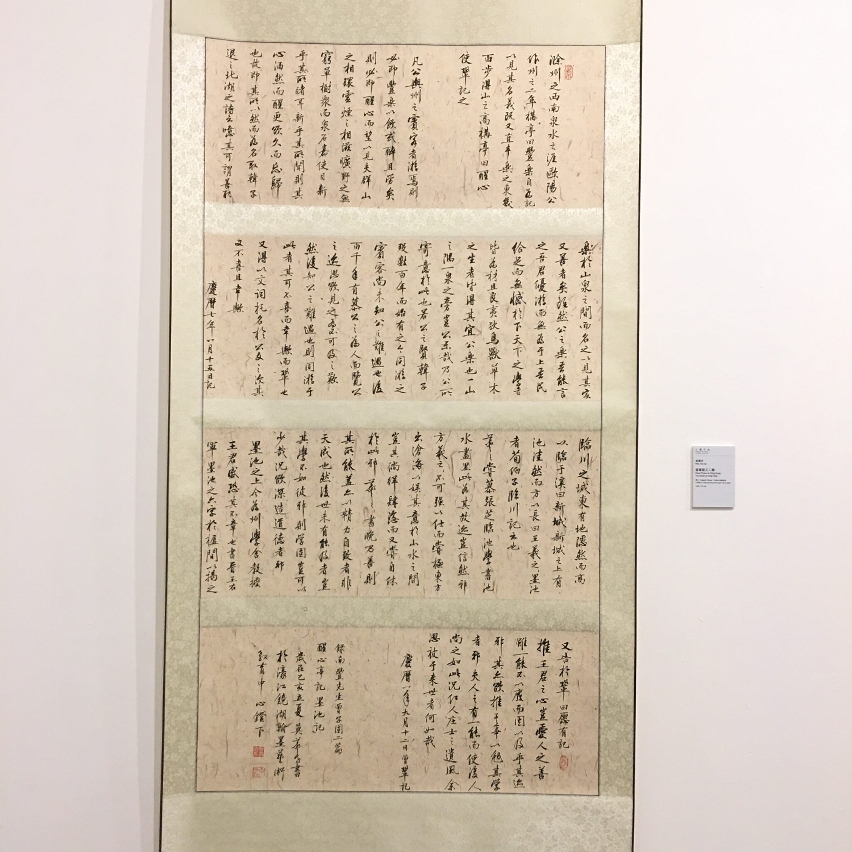 滁州之西南泉水之涯歐陽公
作州之二年構亭曰豐樂自為記
以見其名義既又直豐樂之東幾
百步得山之高構亭曰醒心
使鞏記之
凡公與州之賓客者游焉則
必即豐樂以飲或醉且勞矣
則必即醒心而望以見夫群山
之相環雲煙之相滋曠野之無
窮草樹衆而泉石嘉使目新
乎其所睹耳新乎其所聞則其
心洒然而醒更欲久而忘歸
也故即其所以然而為名取韓子
退之北湖之詩云噫其可謂善取
樂於山泉之間而名之以見其實
又善者矣雖然公之樂吾能言
之吾君優游而無為于上吾民
給足而無憾於下天下之學者
皆為材且良夷狄鳥獸草木
之生者皆得其宜公樂也一山
之隅一泉之旁豈公樂哉乃公所
寄意於此也若公之賢韓子
歿數百年而始有之今同游之
賓客尚未知公之難遇也後
百千年有慕公之為人而覽公
之迹思欲見之有不可及之歎
然後知公之難遇也則同游于
此者其可不喜而幸歟而鞏也
又得以文詞托名於公文之次其
又不喜且幸歟
慶曆七年八月十五日記
臨川之城東有地隱然而高
以臨于溪曰新城新城之上有
池洼然而方以長曰王羲之墨池
者荀伯子臨川記云也
羲之嘗慕張芝臨池學書池
水盡黑此為其故迹豈信然邪
方羲之不可强以仕而嘗極東方
出滄海以娱其意於山水之間
豈其徜徉肆恣而又嘗自休
於此邪羲之書晚乃善則
其所能蓋亦以精力自致者非
天成也然後世未有能及者豈
其學不如彼邪則學固豈可以
少哉況欲深造道德者邪
墨池之上今為州學舍教授
王君盛恐其不章也書晉王右
軍墨池之六字於楹間以揭之
又告於鞏曰願有記
推王君之心豈愛人之善
雖一能不以廢而因以及乎其迹
邪其亦欲推其事以勉其學
者邪夫人之有一能而使後人
尚之如此況仁人莊士之遺風余
思被于來世者何如哉
慶曆八年九月十二日曾鞏記
錄南豐先生曾子固二篇
醒心亭記墨池記
歲在乙亥孟夏書
於濠江鏡湖翰墨藝術
教育中心鐙下